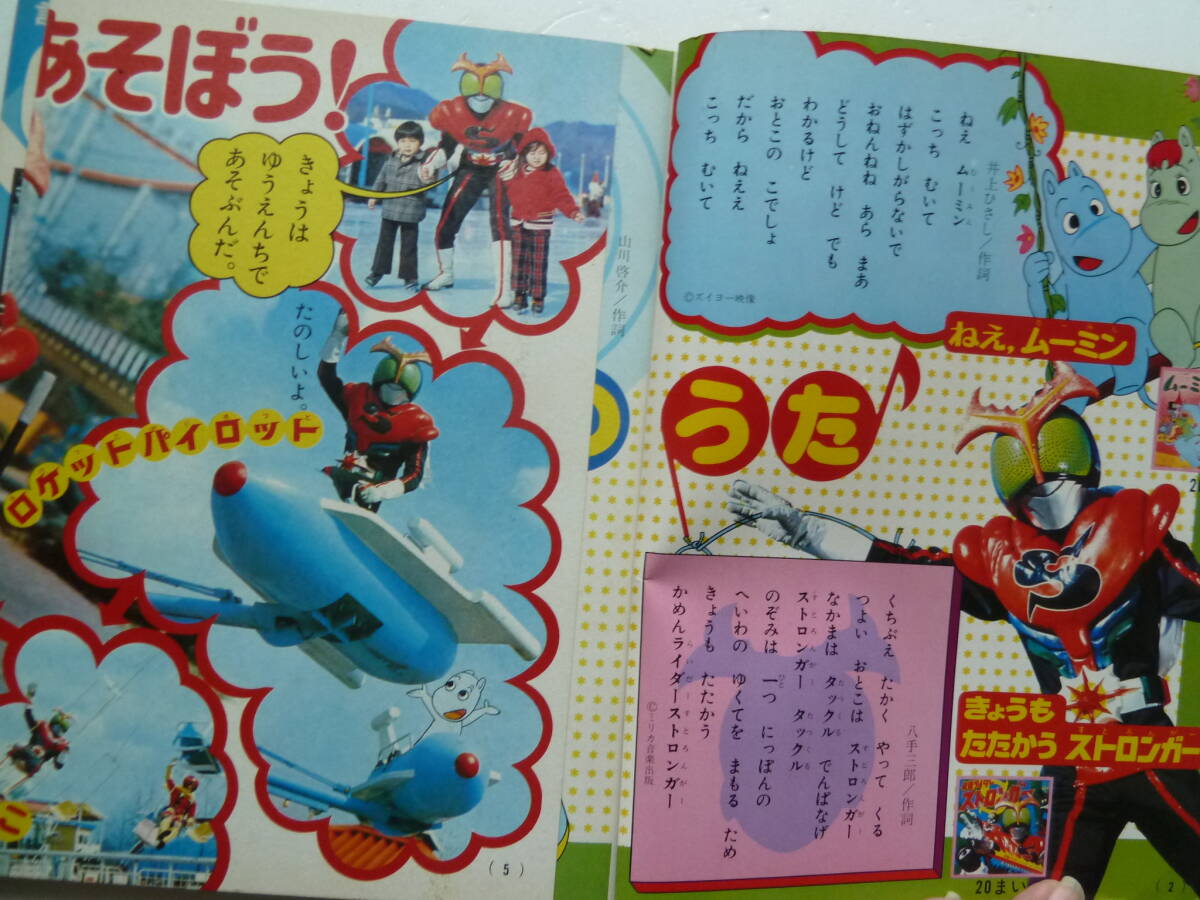 あそぼう!
きょうは
ゆうえんちで
あそぶんだ。
たのしいよ。
ロケットパイロット
こ
(5)
山川啓介/作詞
ねえ ムーミン
こっち むいて
はずかしがらないで
おねんねね あら まあ
どうして けど でも
わかるけど
おとこの こでしょ
だから ねええ
こっち むいて
井上ひさし/作詞
©ズイヨー映像
ねえ,ムーミン
うた
八手三郎/作詞
くちぶえ たかく やって くる
つよい おとこは ストロンガー
なかまは タックル でんぱなげ
ストロンガー タックル
のぞみは 一つ にっぽんの
へいわの ゆくてを まもる ため
きょうも たたかう
かめんライダーストロンガー
©ミリカ音楽出版
きょうも
たたかう ストロンガー
ストロンガー
20まい
(2)